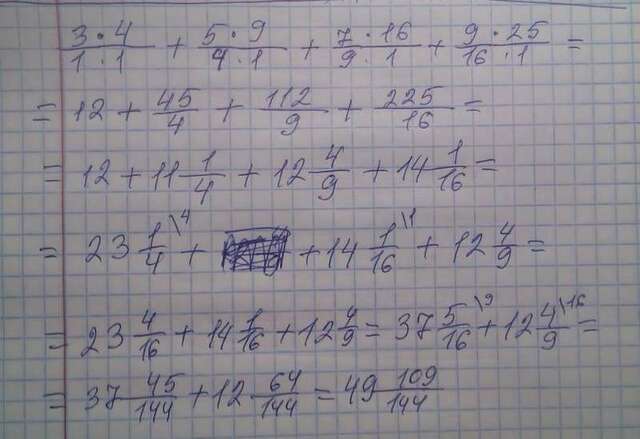 3·4/1·1 + 5·9/4·1 + 7·16/9·1 + 9·25/16·1 =
= 12 + 45/4 + 112/9 + 225/16 =
= 12 + 11 1/4 + 12 4/9 + 14 1/16 =
= 23 1/4 \4 + + 14 1/16 \1 + 12 4/9 =
= 23 4/16 + 14 1/16 + 12 4/9 = 37 5/16 \9 + 12 4/9 \16 =
= 37 45/144 + 12 64/144 = 49 109/144